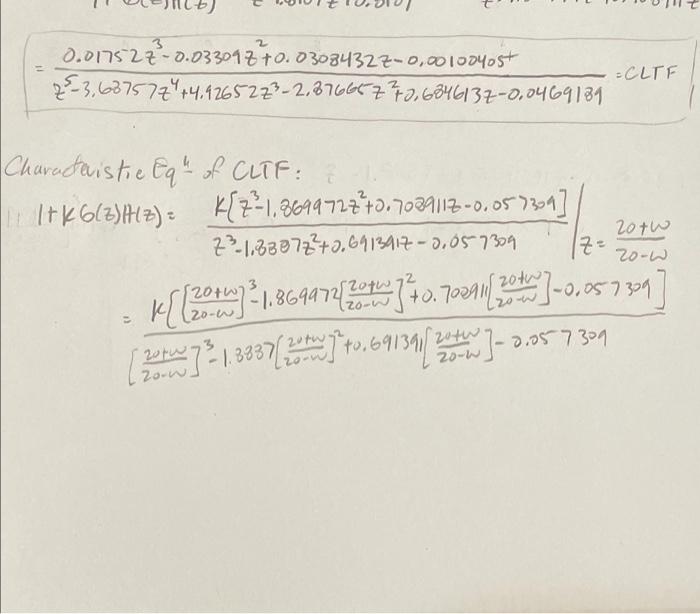 = 0.01752z³-0.03309z²+0.0308432z-0.00100405+ / z⁵-3.68757z⁴+4.92652z³-2.87665z²+0.684613z-0.0469189 = CLTF
Characteristic Eqⁿ of CLTF:
1+KG(z)H(z)= K[z³-1.869972z²+0.708911z-0.057309] / z³-1.8887z²+0.691391z-0.057309 | z= 20+w / 20-w
= K[[20+w / 20-w]³-1.869972[20+w / 20-w]²+0.708911[20+w / 20-w]-0.057309] / [20+w / 20-w]³-1.8887[20+w / 20-w]²+0.691391[20+w / 20-w]-0.057309